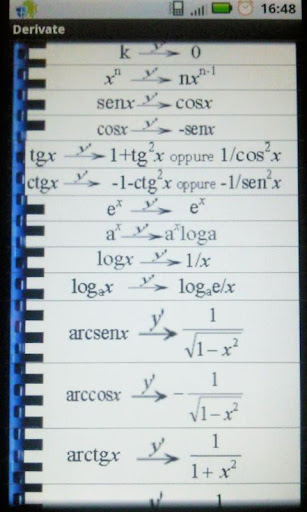 16:48
Derivate
k y' → 0
xⁿ y' → nxⁿ⁻¹
senx y' → cosx
cosx y' → -senx
tgx y' → 1+tg²x oppure 1/cos²x
ctgx y' → -1-ctg²x oppure -1/sen²x
eˣ y' → eˣ
aˣ y' → aˣloga
logx y' → 1/x
logₐx y' → logₐe/x
arcsenx y' → 1/√(1-x²)
arccosx y' → -1/√(1-x²)
arctgx y' → 1/(1+x²)
y' 1